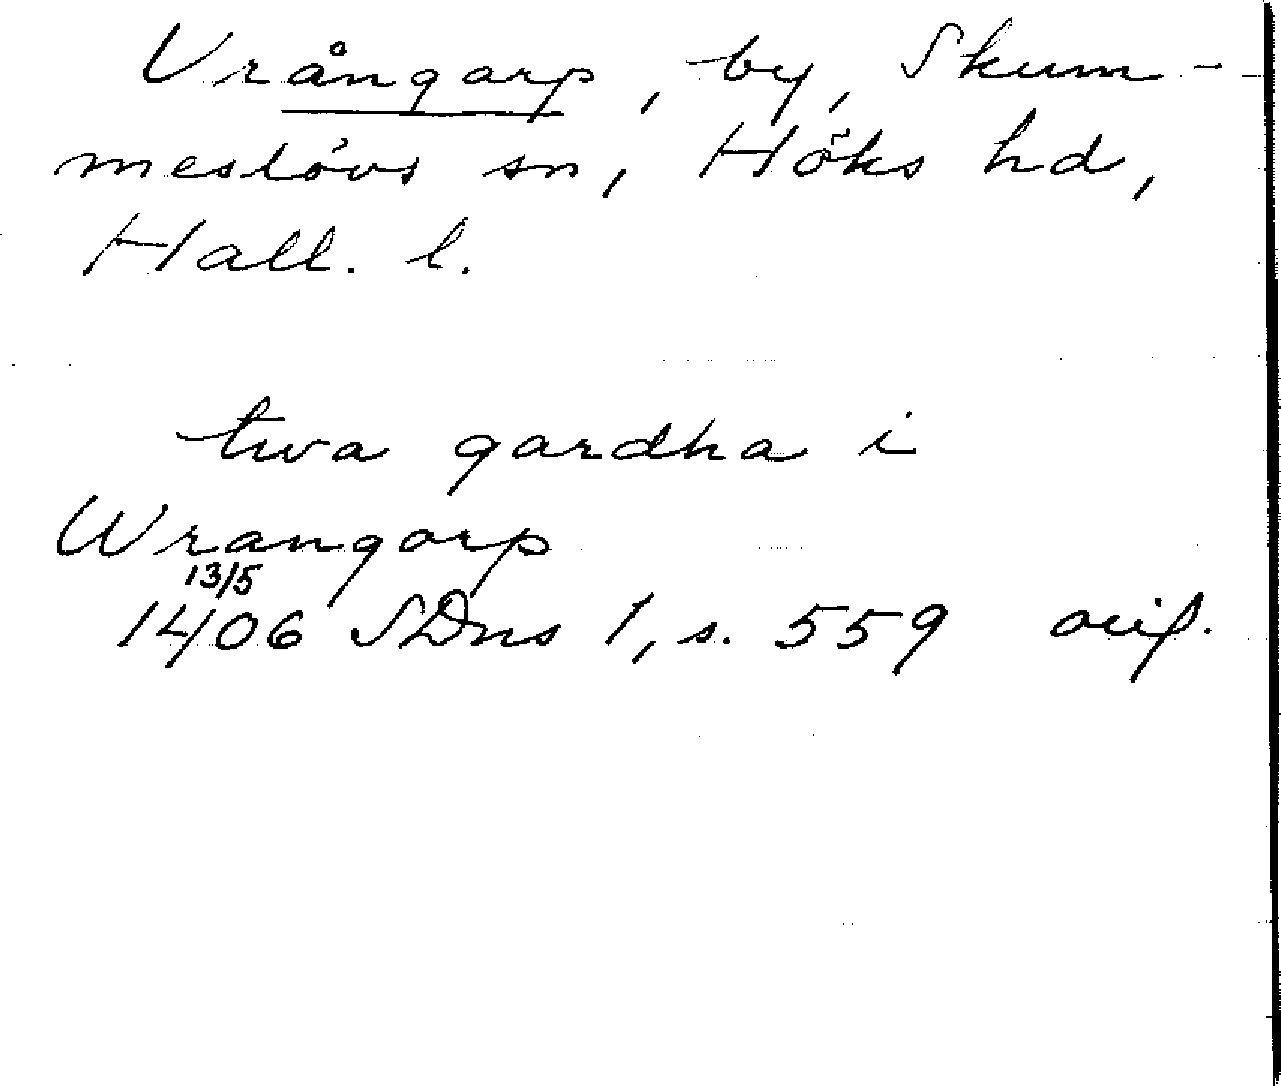 Vrångarp, by, Skum-
meslövs sn, Höks hd,
Hall. l.
twa gardha i
Wrangorp
13/5
1406 SDns 1, s. 559